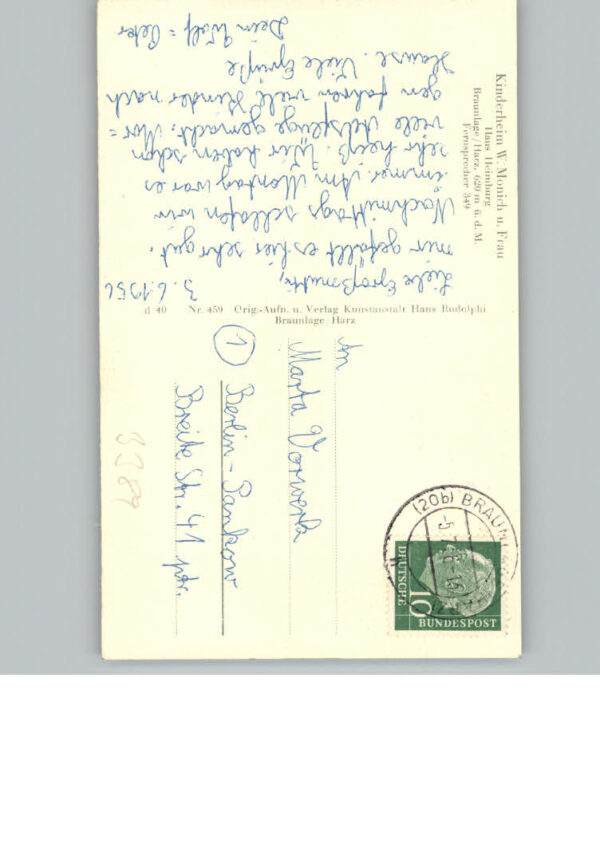 Kinderheim W. Monich u. Frau
Haus Heimburg
Braunlage/Harz, 620 m ü. d. M.
Fernsprecher 349
3.6.1956
Liebe Großmutti,
mir gefällt es hier sehr gut.
Nachmittags schlafen wir
immer. Am Montag war es
sehr heiß. Wir haben schon
viele Ausflüge gemacht. Mor=
gen fahren viele Kinder nach
Hause. Viele Grüße
Dein Wolf=Peter
d 40 Nr. 459 Orig.-Aufn. u. Verlag Kunstanstalt Hans Rudolphi
Braunlage Harz
An
Marta Vorwerk
1 Berlin-Pankow
Breite Str. 41 ptr.
3389
(20b) BRAUNL
DEUTSCHE
10
BUNDESPOST